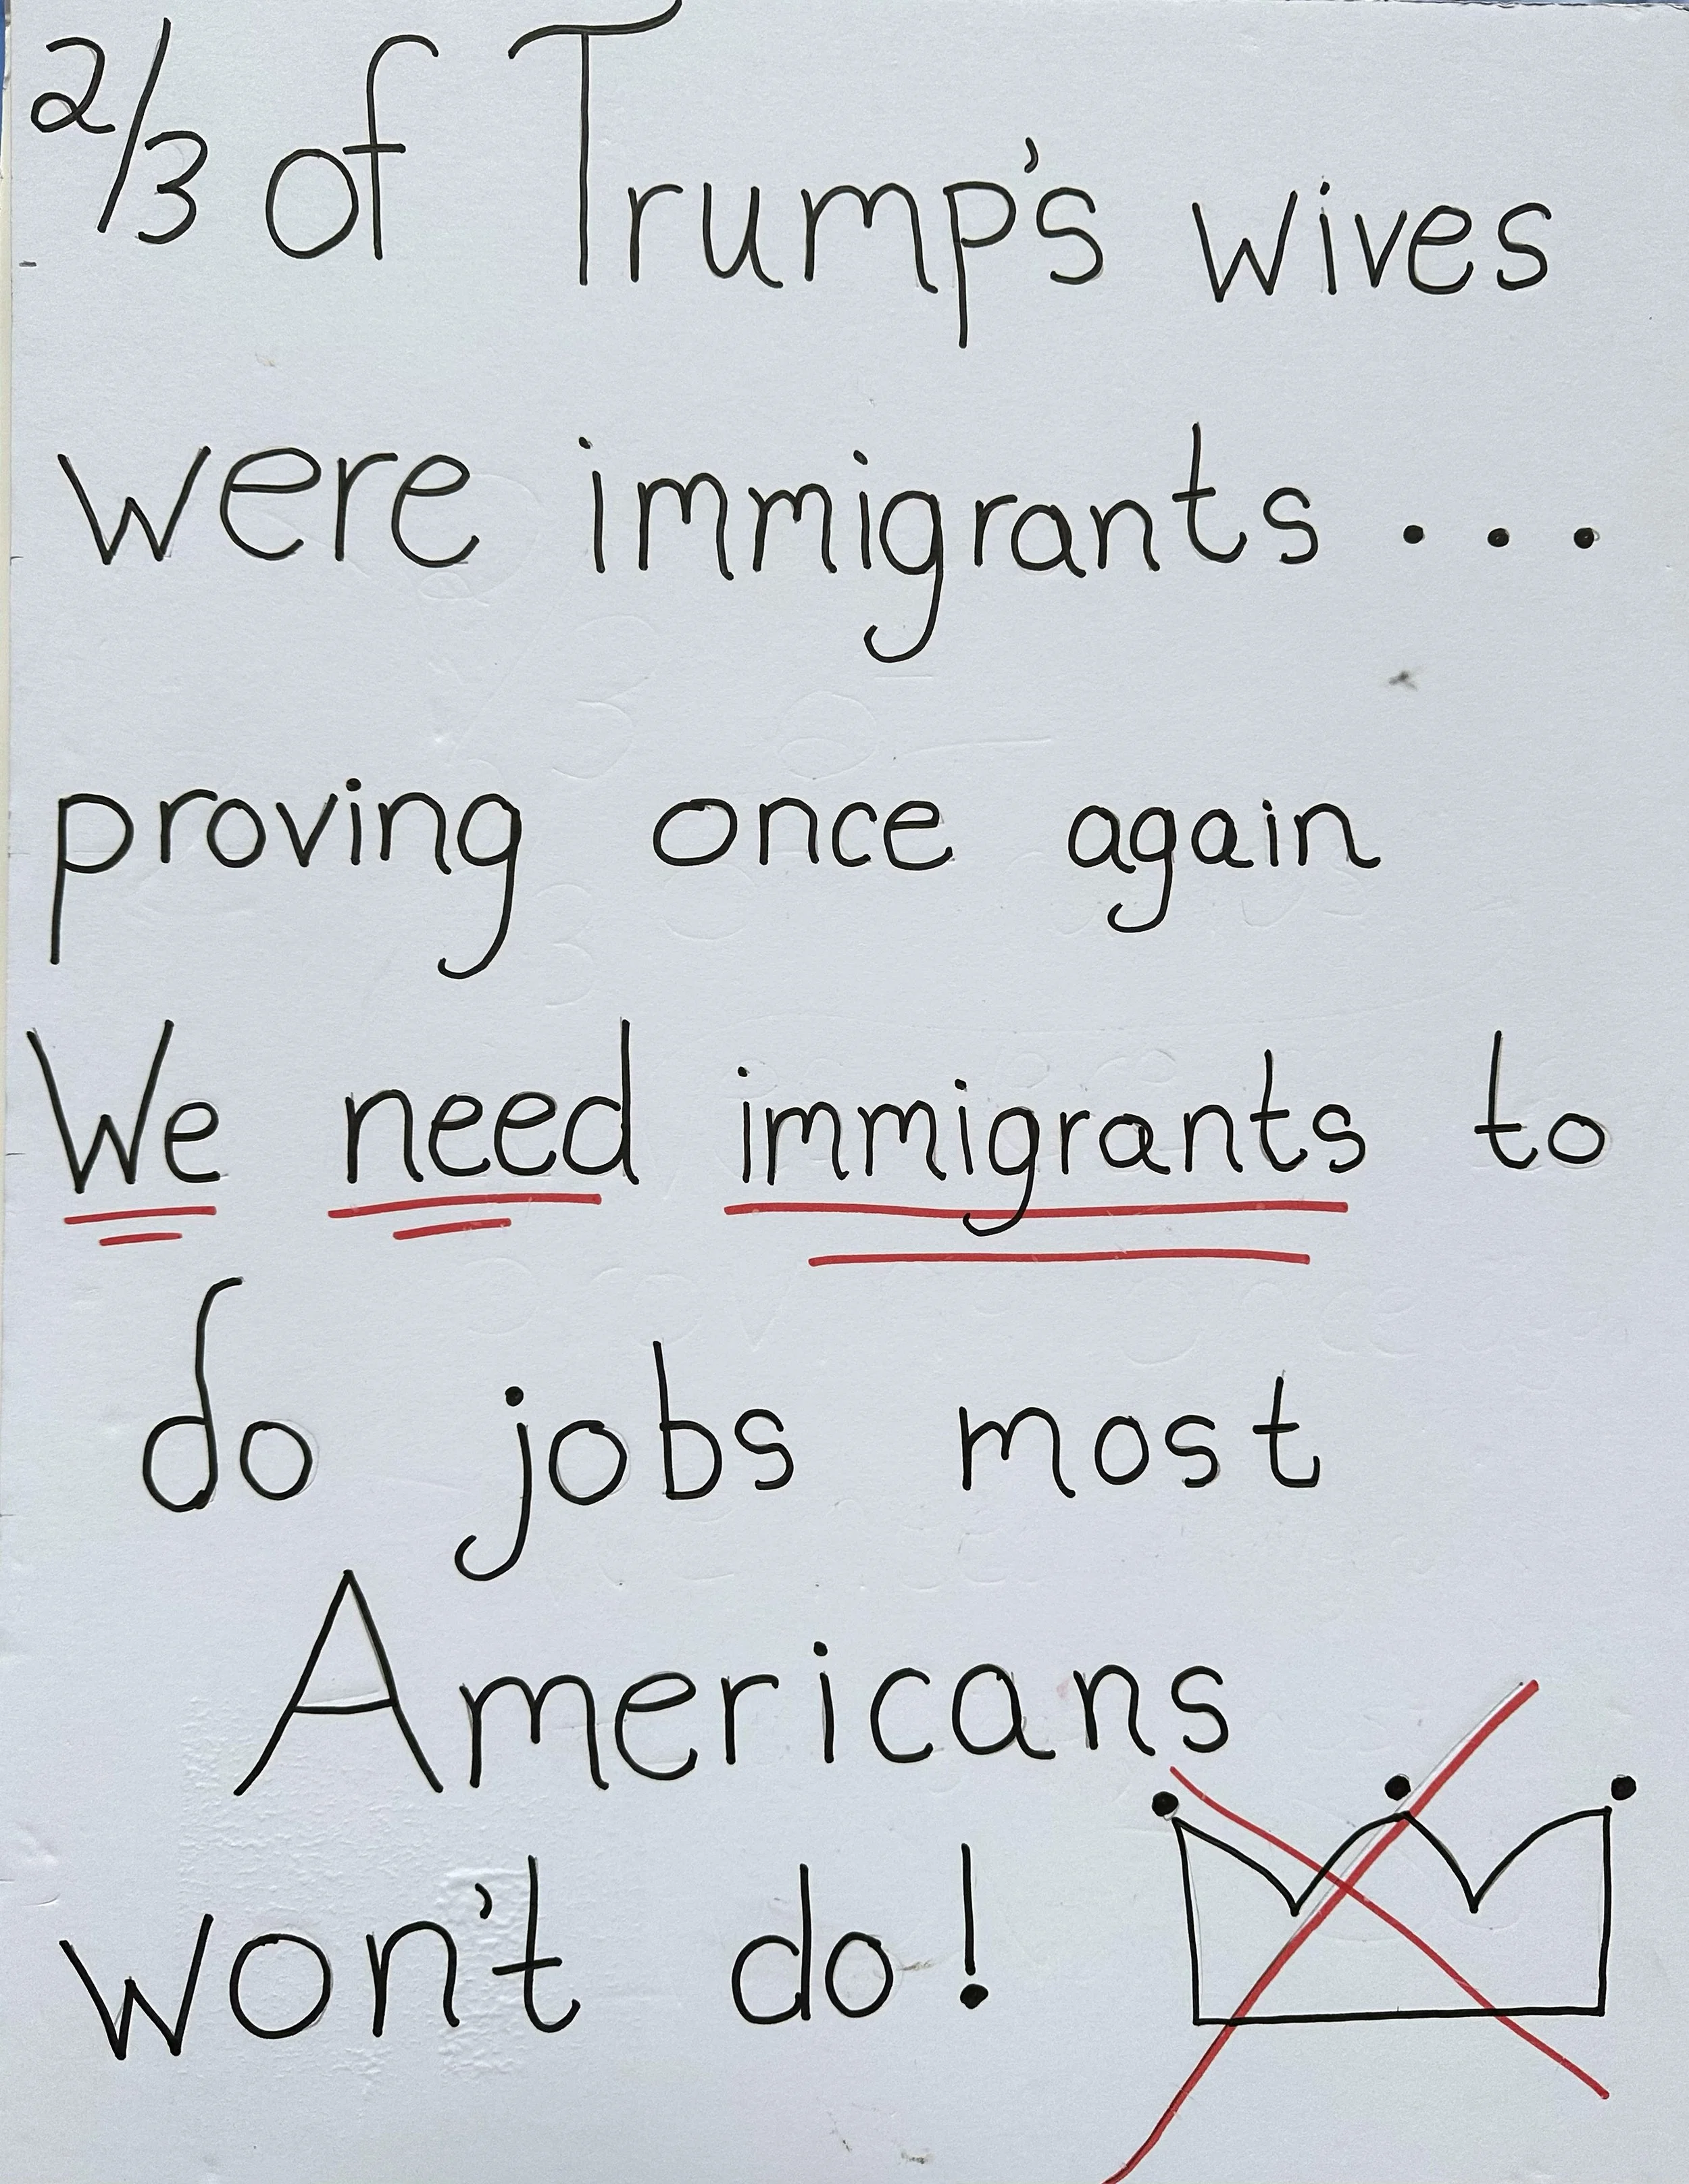 2/3 of Trump's wives
were immigrants...
proving once again
We need immigrants to
do jobs most
Americans
won't do!